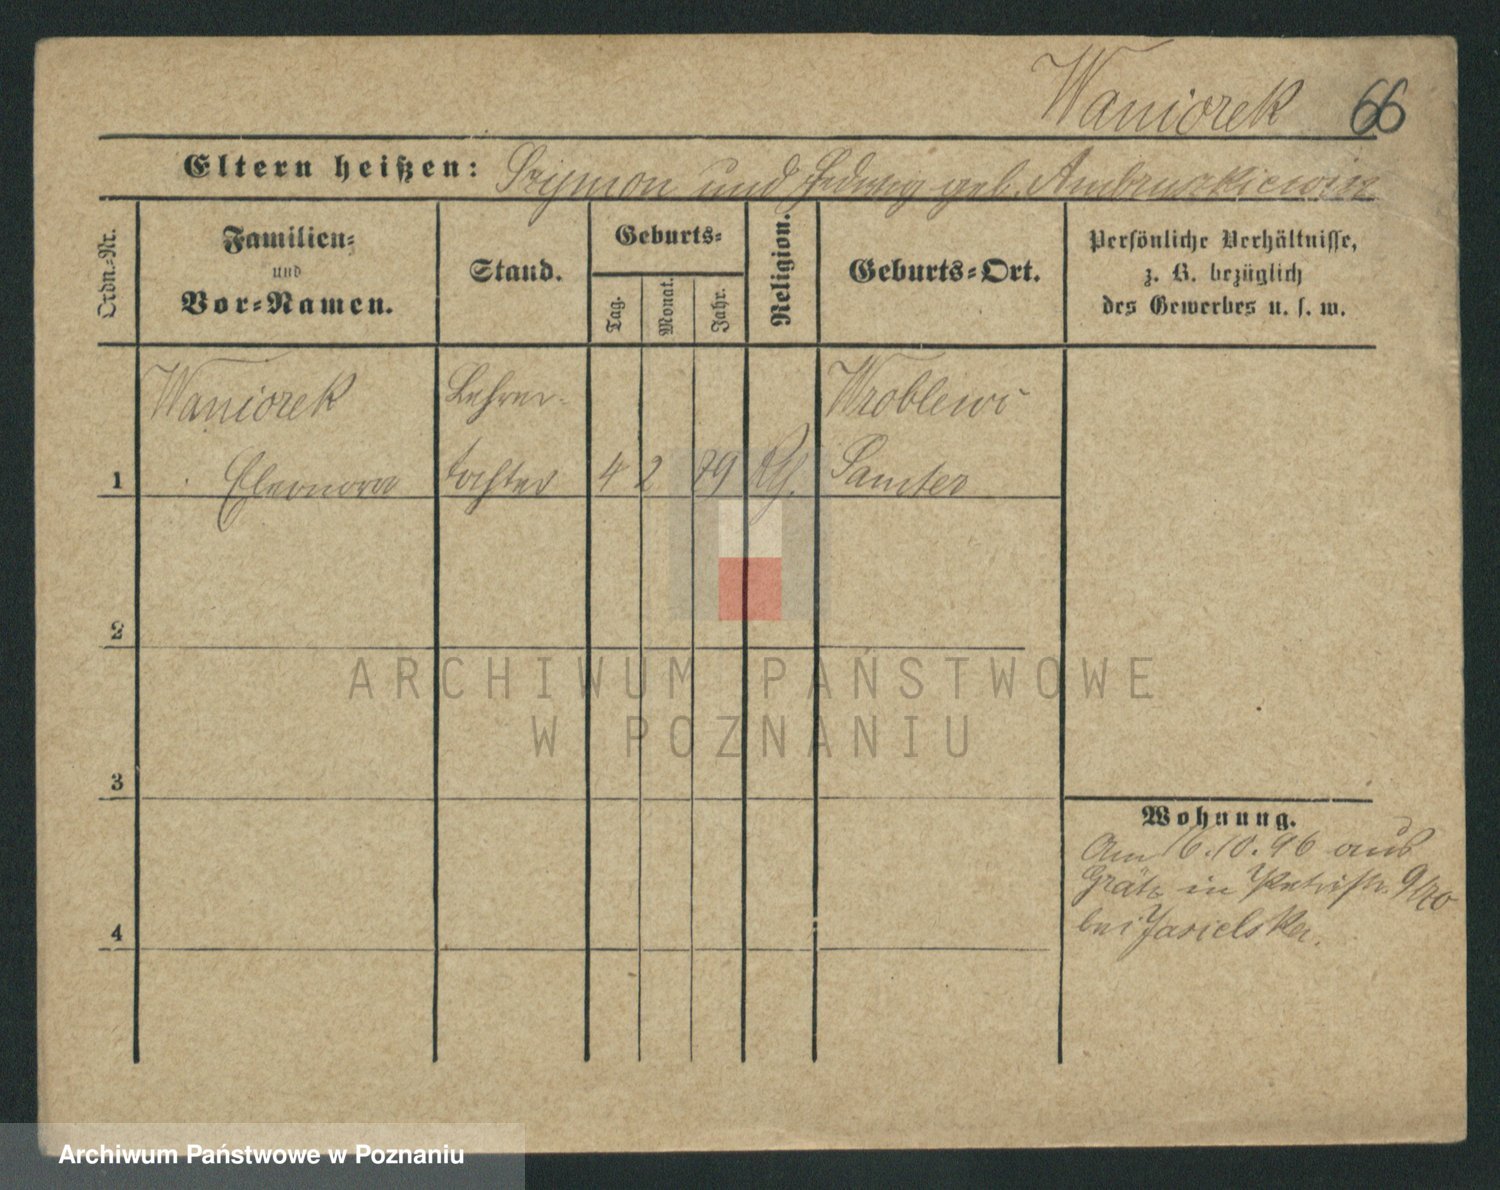 Waniorek 66
Eltern heißen: Szymon und Hedwig geb. Ambruszkiewicz
Ordn.-Nr.
Familien-
und
Vor-Namen.
Stand.
Geburts-
Tag.
Monat.
Jahr.
Religion.
Geburts-Ort.
Persönliche Verhältnisse,
z. B. bezüglich
des Gewerbes u. s. w.
Waniorek Lehrer- Wroblewo
1 Eleonora tochter 4 2 79 kth. Samter
2
3
4
Wohnung.
Am 16.10.96 aus
Grätz in Petristr. 9
bei Jasielska.
ARCHIWUM PAŃSTWOWE
W POZNANIU
Archiwum Państwowe w Poznaniu